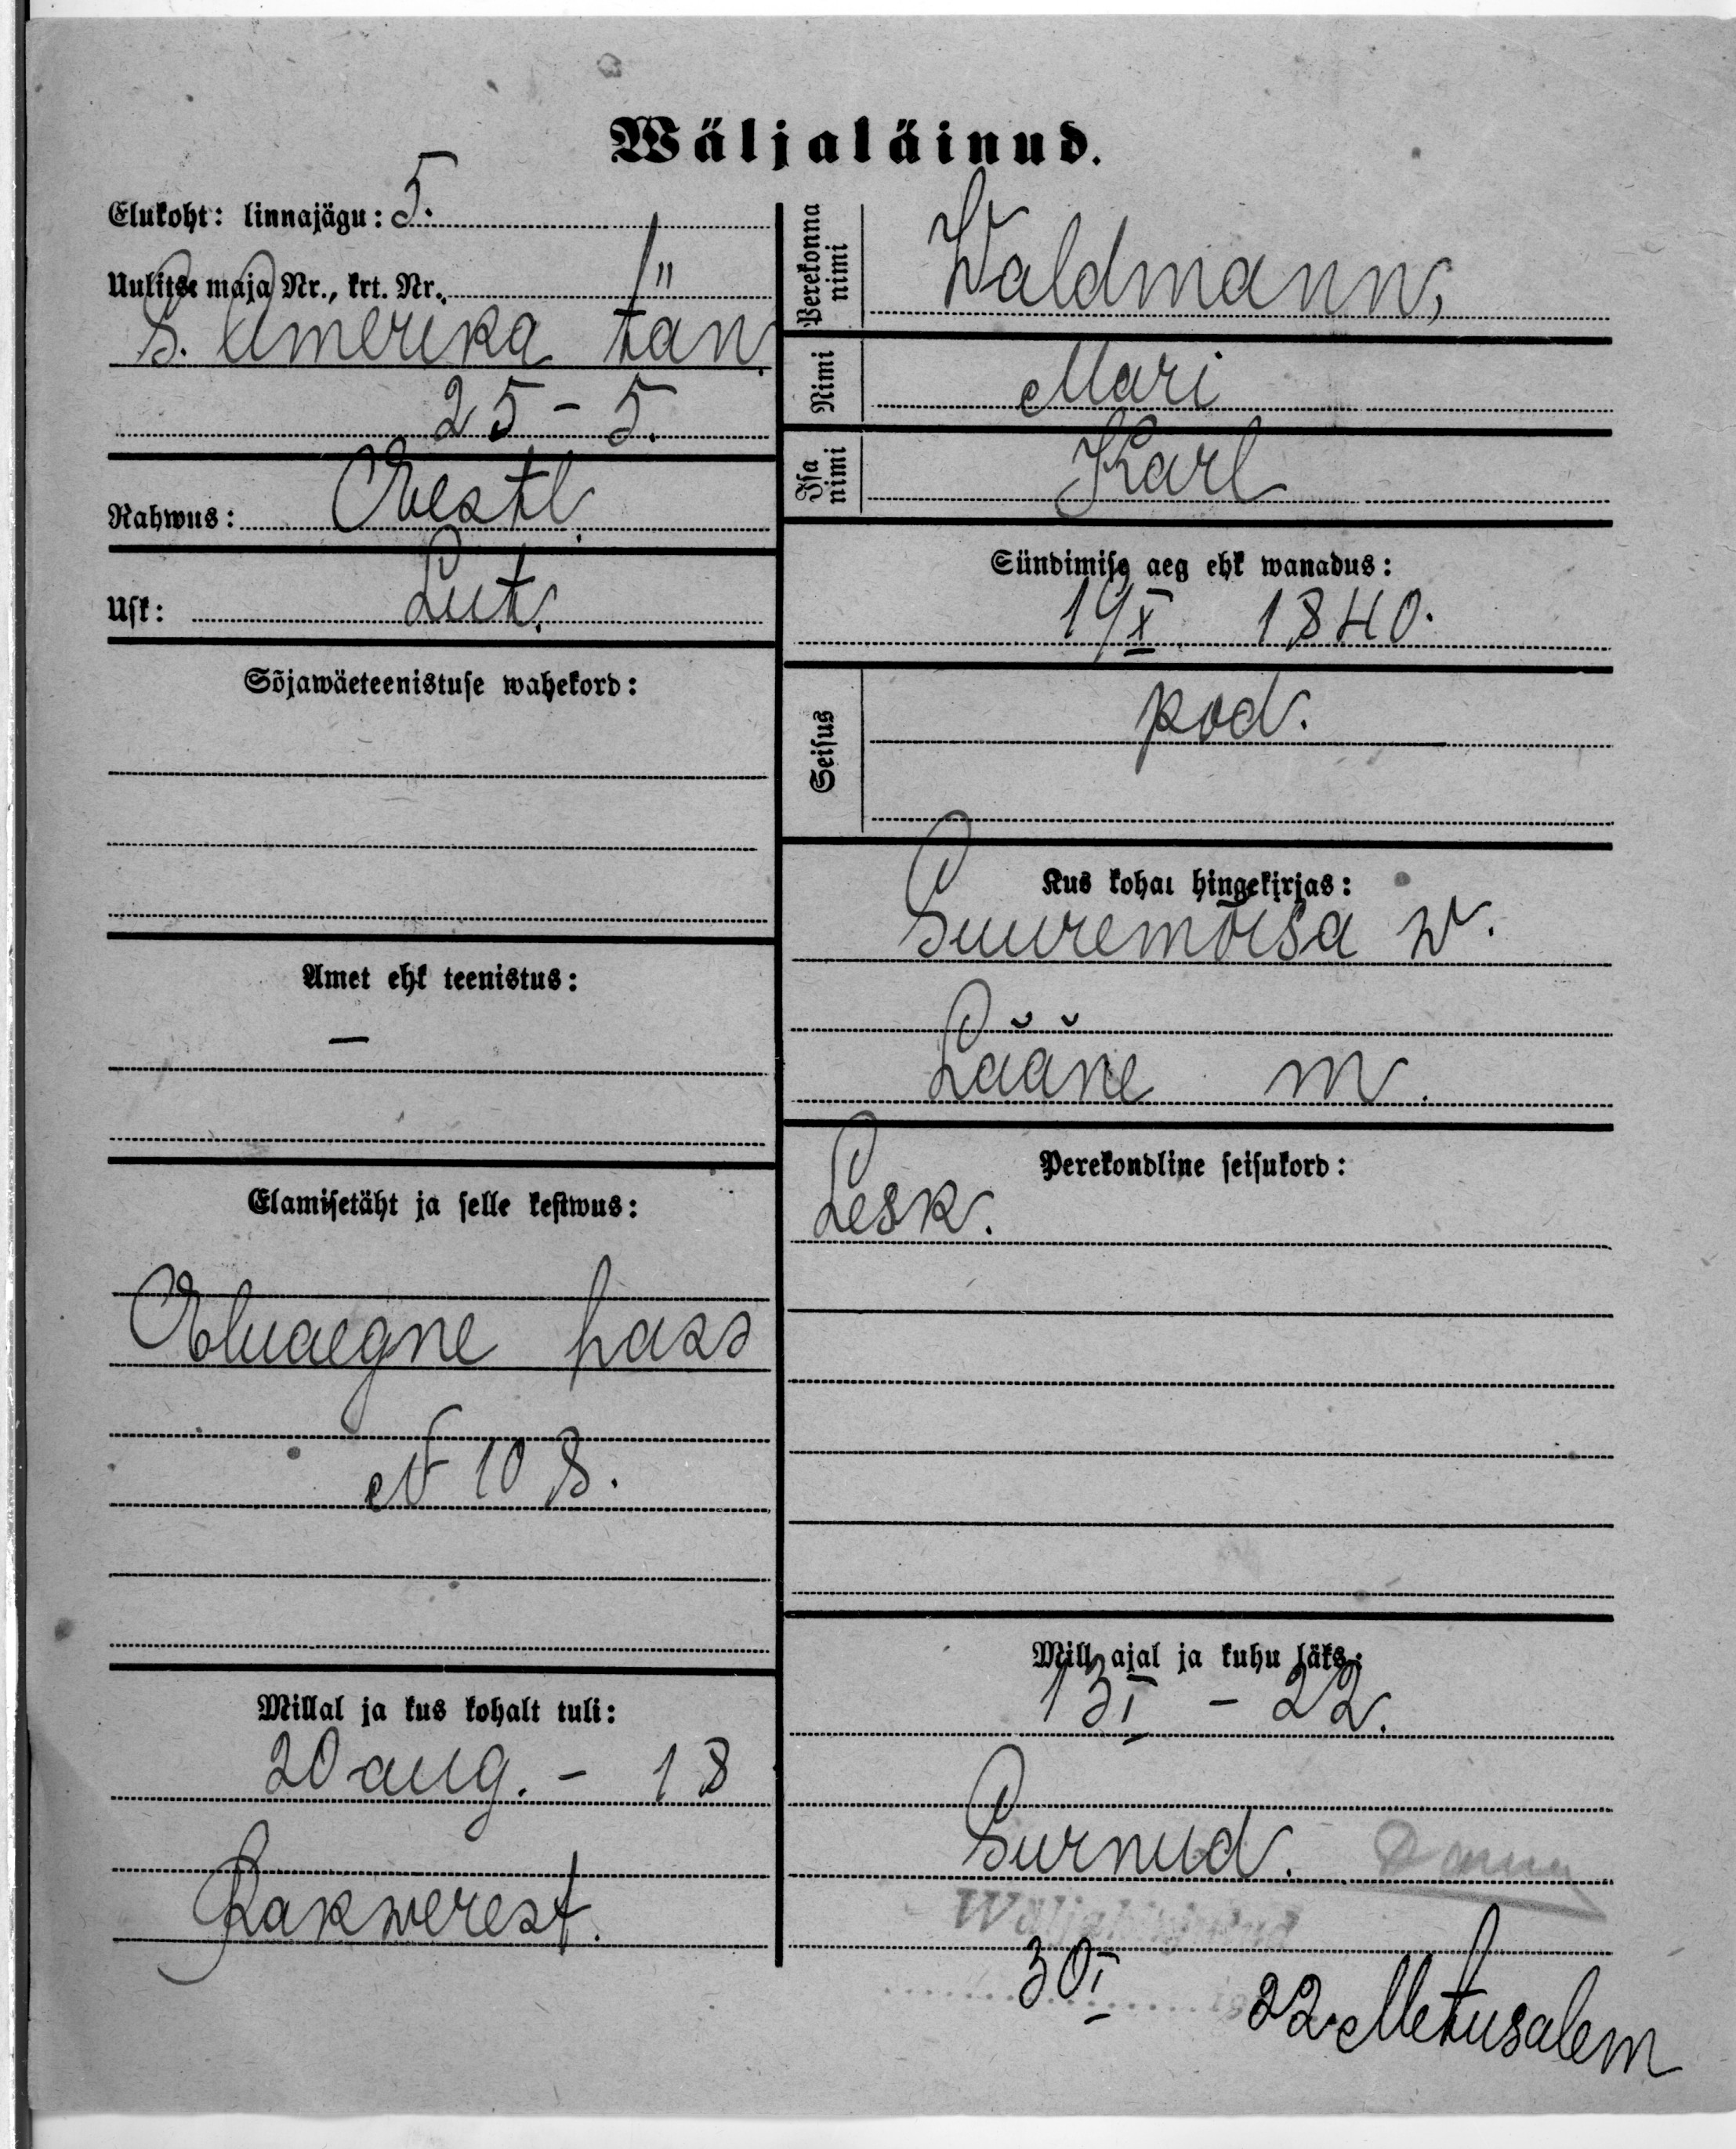 Wäljaläinud.
Elukoht: linnajägu: 5.
Uulitse maja Nr., krt. Nr.
S. Amerika tän.
25 - 5.
Rahwus: Eestl.
Usk: Lut.
Sõjawäeteenistuse wahekord:
Amet ehk teenistus:
—
Elamisetäht ja selle kestwus:
Eluaegne pass
N 108.
Millal ja kus kohalt tuli:
20 aug. - 18
Rakwerest.
Perekonna nimi
Waldmann,
Nimi
Mari
Isa nimi
Karl
Sündimise aeg ehk wanadus:
19 X 1840.
Seisus
pod.
Kus kohal hingekirjas:
Suuremõisa w.
Lääne m.
Perekondline seisukord:
Lesk.
Mill ajal ja kuhu läks:
13 I - 22.
Surnud.
Wäljakirjutud
30 I 22. Metusalem